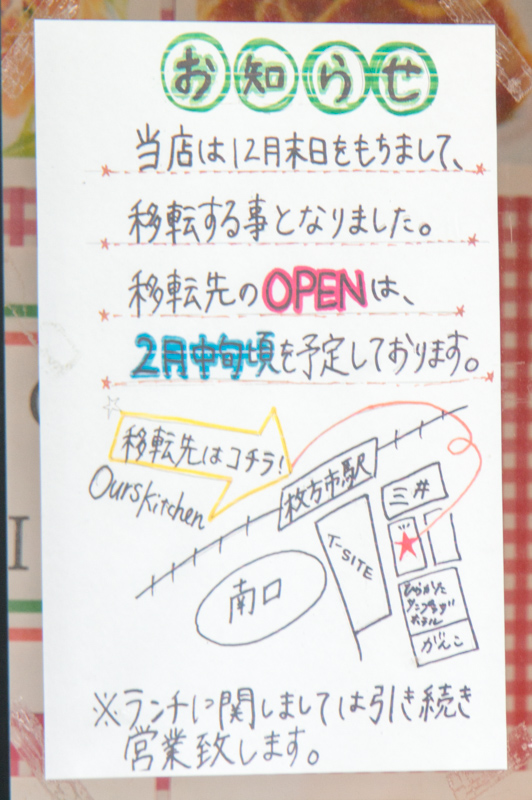 お知らせ
当店は12月末日をもちまして、
移転する事となりました。
移転先のOPENは、
2月中旬頃を予定しております。
移転先はコチラ!
Ours Kitchen
枚方市駅
三井
T-SITE
南口
ひらかた
サンプラザ
ホテル
がんこ
※ランチに関しましては引き続き
営業致します。